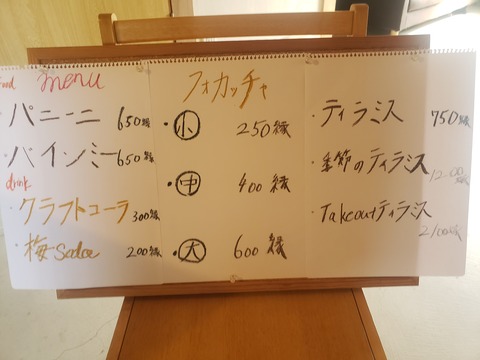 Food menu
・パニーニ 650縁
・バインミー 650縁
drink
・クラフトコーラ 300縁
・梅soda 200縁
フォカッチャ
・小 250縁
・中 400縁
・大 600縁
・ティラミス 750縁
・季節のティラミス 1200縁
・Takeoutティラミス 2100縁